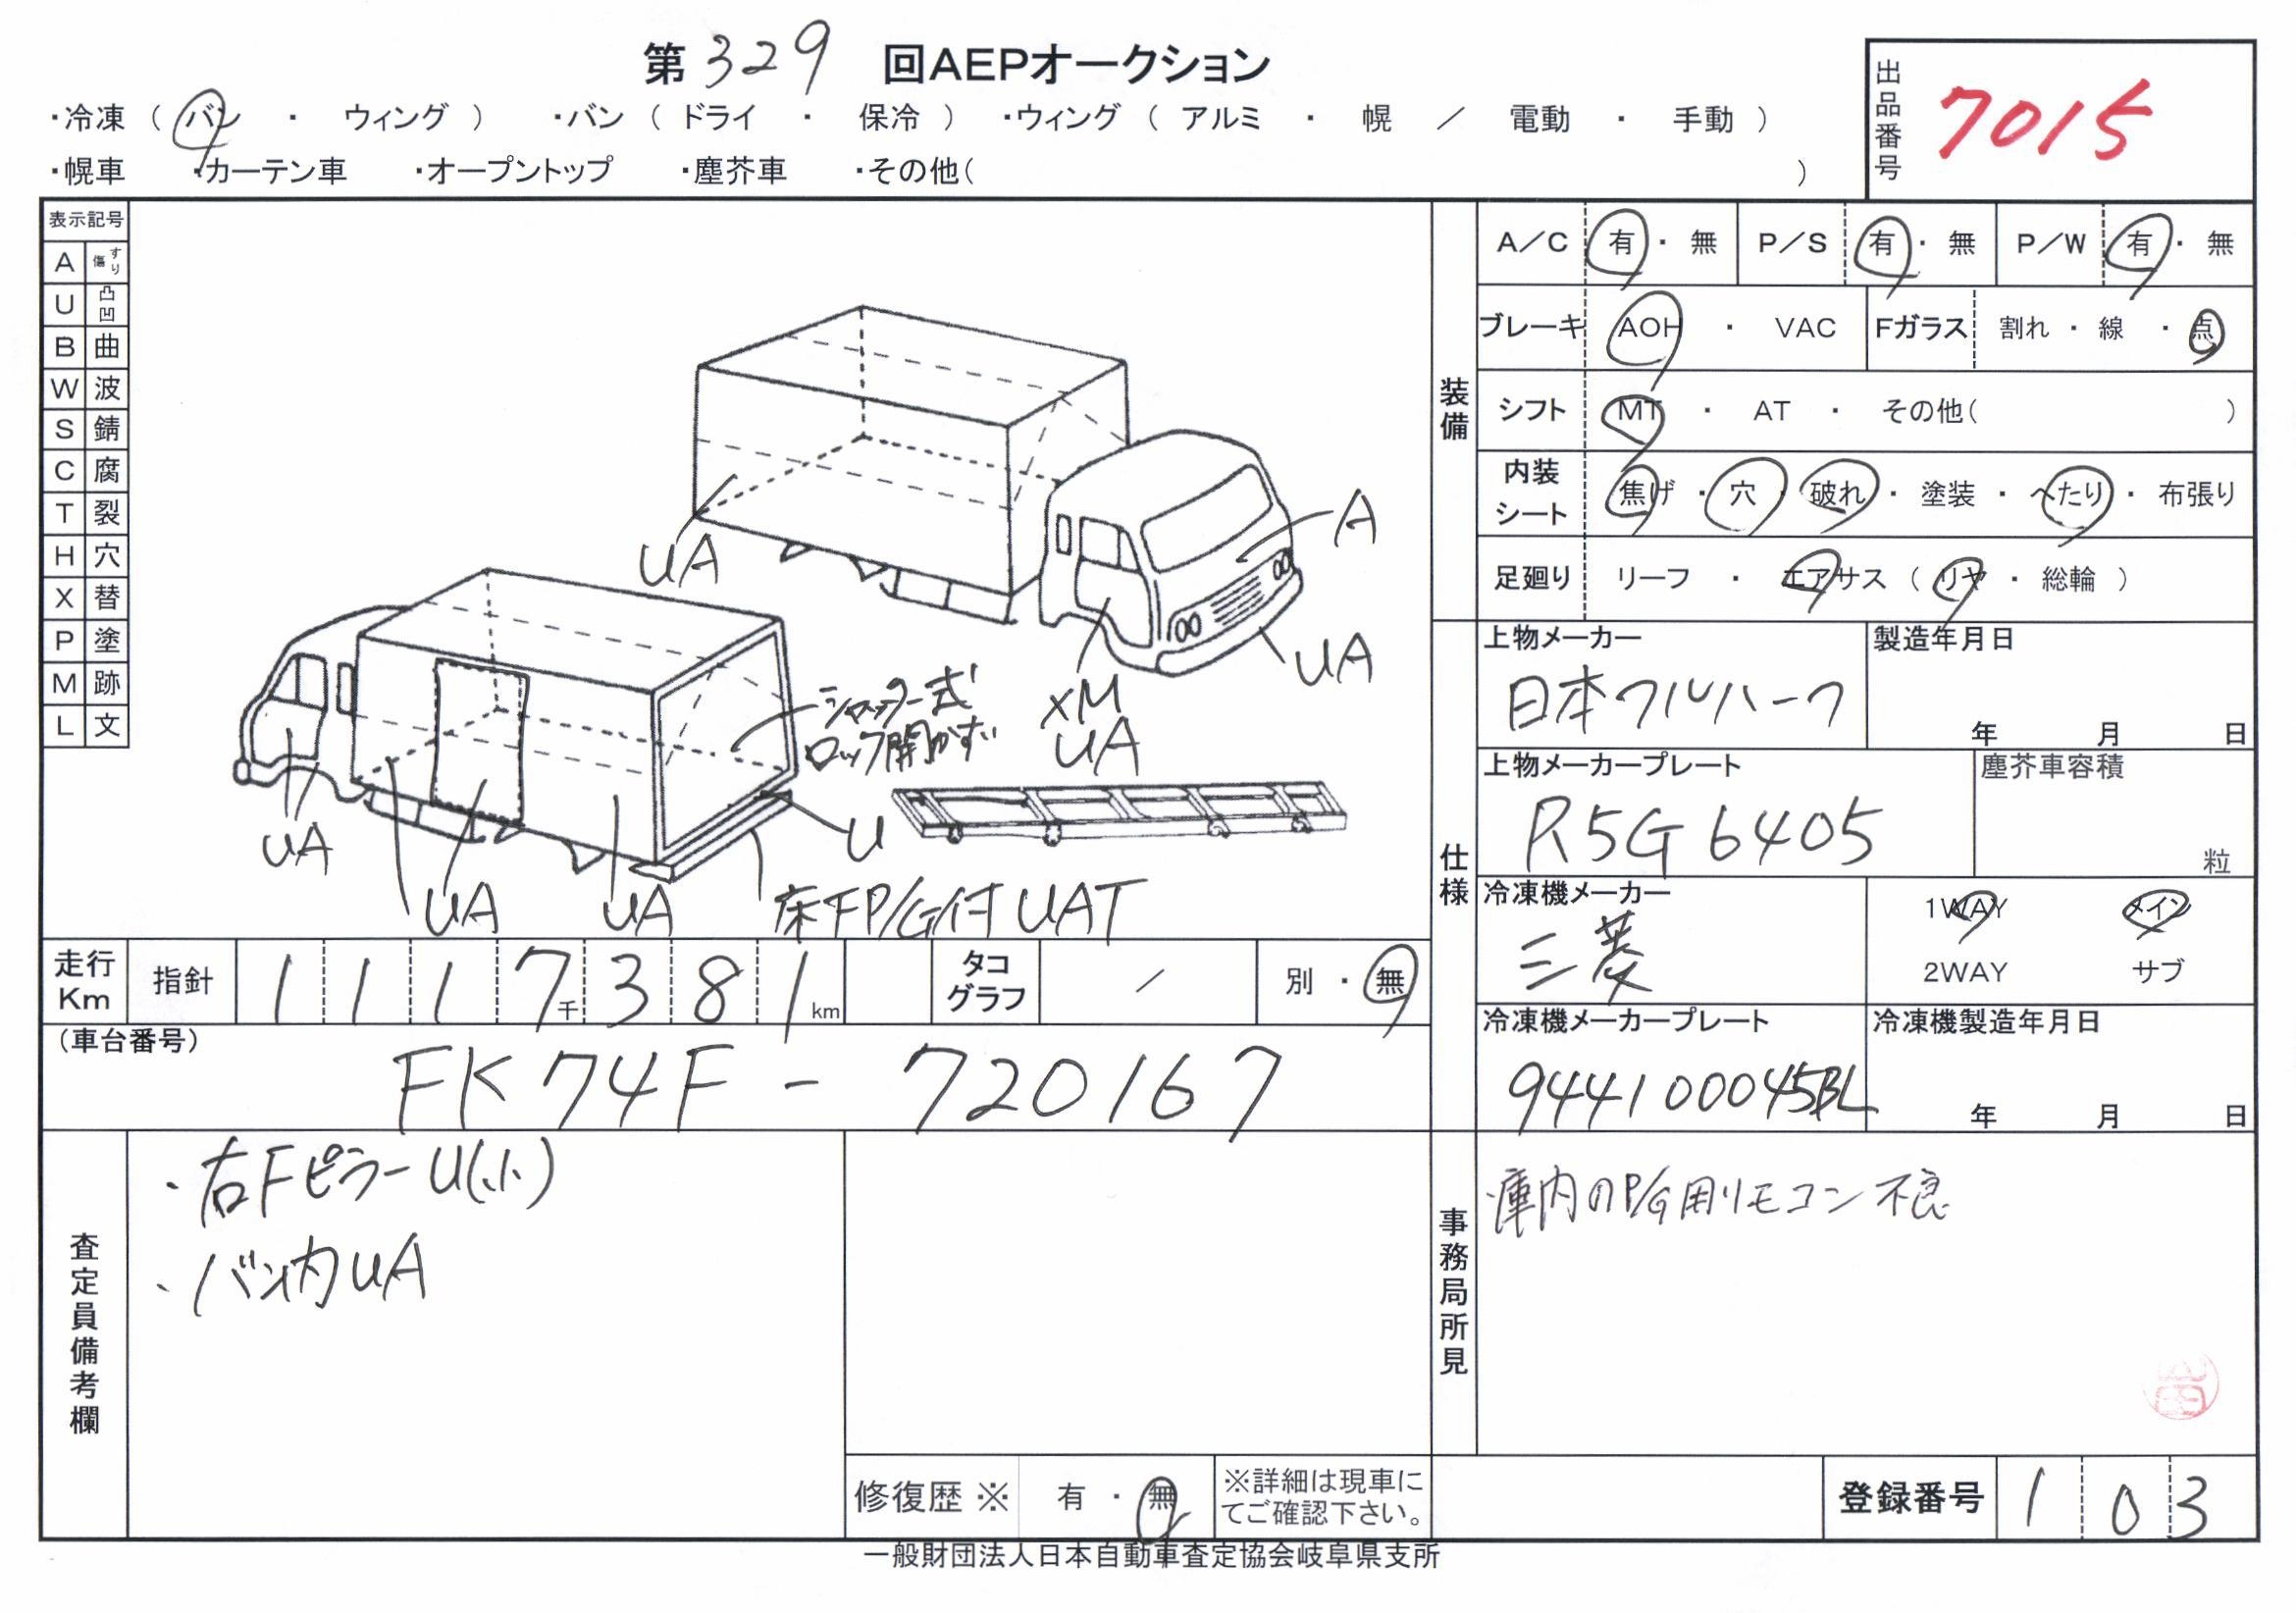 第329回AEPオークション
・冷凍（バン・ウィング）・バン（ドライ・保冷）・ウィング（アルミ・幌／電動・手動）
・幌車・カーテン車・オープントップ・塵芥車・その他（ ）
出品番号 7015
表示記号
A すり傷
U 凸凹
B 曲
W 波
S 錆
C 腐
T 裂
H 穴
X 替
P 塗
M 跡
L 文
UA
A
UA
XM
UA
シャッター式
ロック開かず
U
UA
UA
UA
床下P/G付 UAT
装備
A／C 有・無 P／S 有・無 P／W 有・無
ブレーキ AOH・VAC Fガラス 割れ・線・点
シフト MT・AT・その他（ ）
内装シート 焦げ・穴・破れ・塗装・へたり・布張り
足廻り リーフ・エアサス（リヤ・総輪）
仕様
上物メーカー 製造年月日
日本フルハーフ
年 月 日
上物メーカープレート 塵芥車容積
R5G6405
粒
冷凍機メーカー
三菱
1WAY メイン
2WAY サブ
冷凍機メーカープレート 冷凍機製造年月日
944100045BL
年 月 日
走行Km 指針 1117千381km タコグラフ ／ 別・無
（車台番号）
FK74F-720167
査定員備考欄
・右Fピラー U(小)
・バン内UA
修復歴※ 有・無 ※詳細は現車にてご確認下さい。
事務局所見
・庫内のP/G用リモコン不良
登録番号 103
一般財団法人日本自動車査定協会岐阜県支所